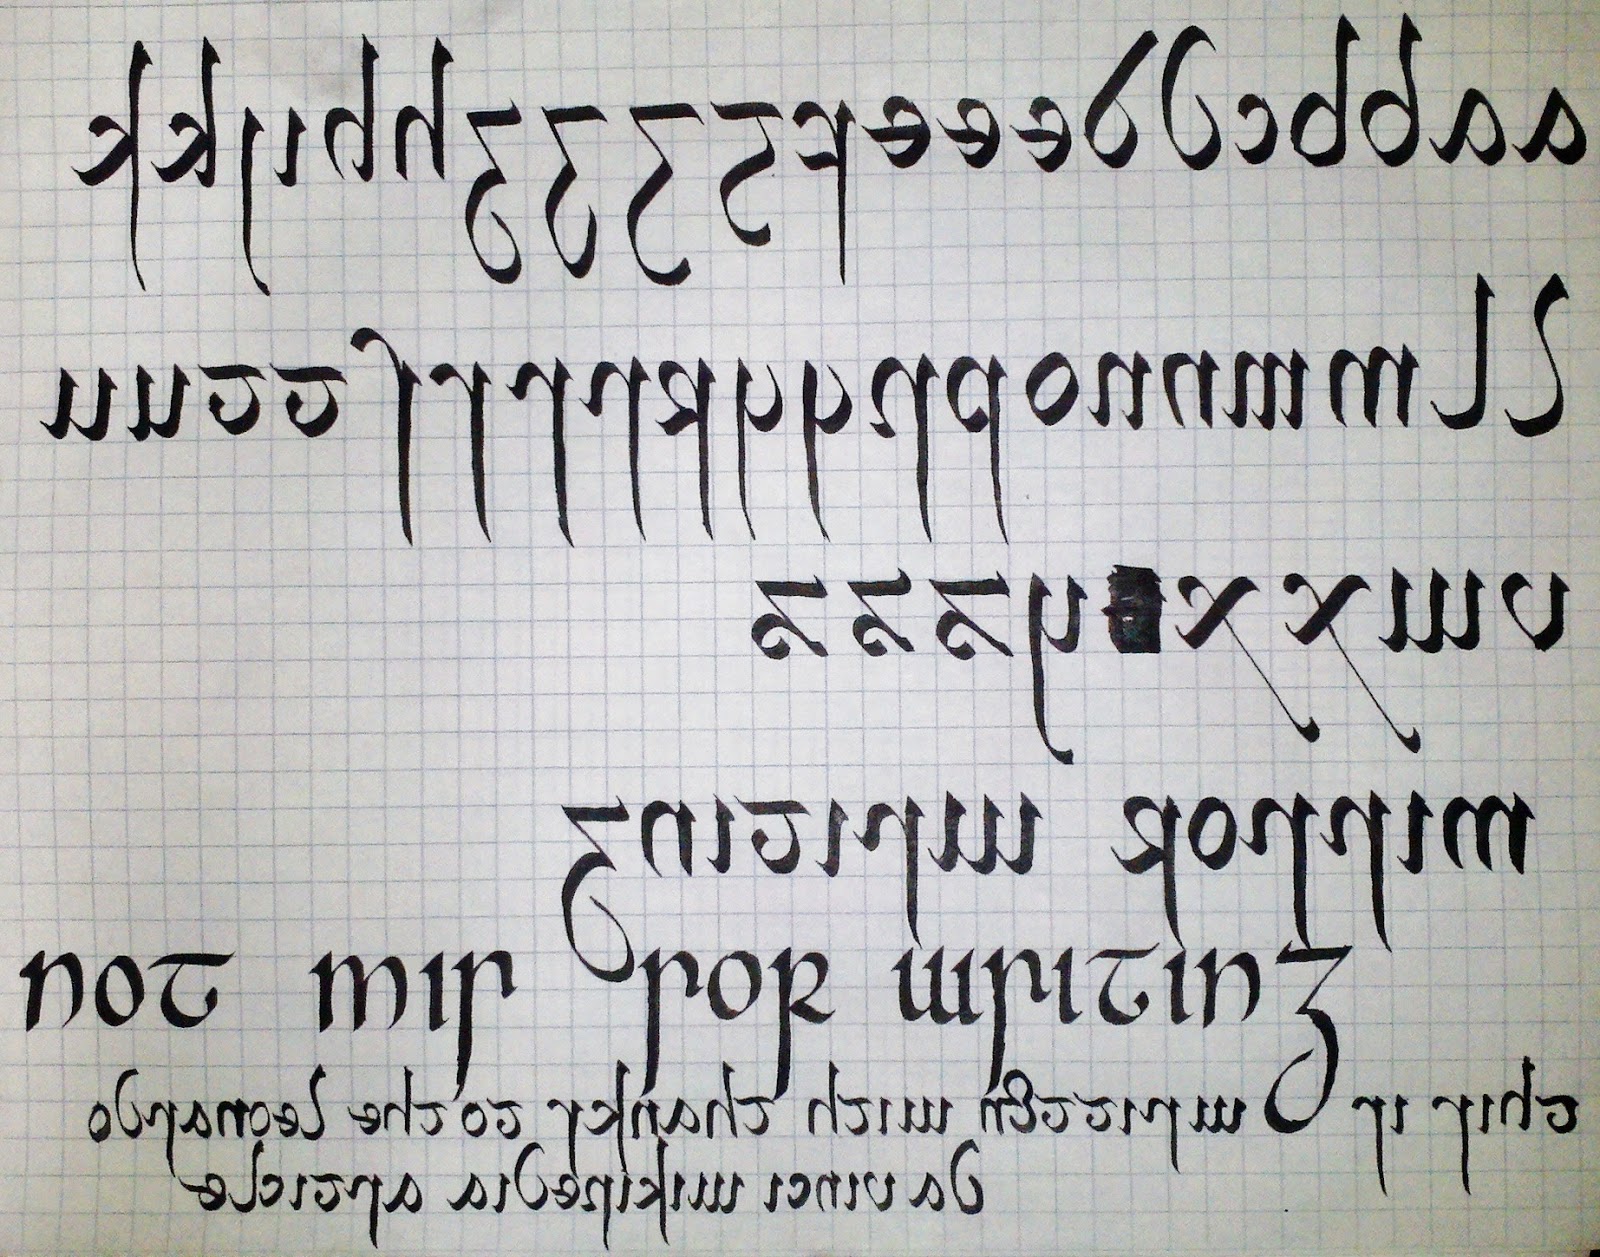 aabbcddeeefgggghhijkk
llmmnnoppqqrrrssttuu
vwxxyzzz
mirror writing
not mirror writing
this is written with thanks to the leonardo
da vinci wikipedia article